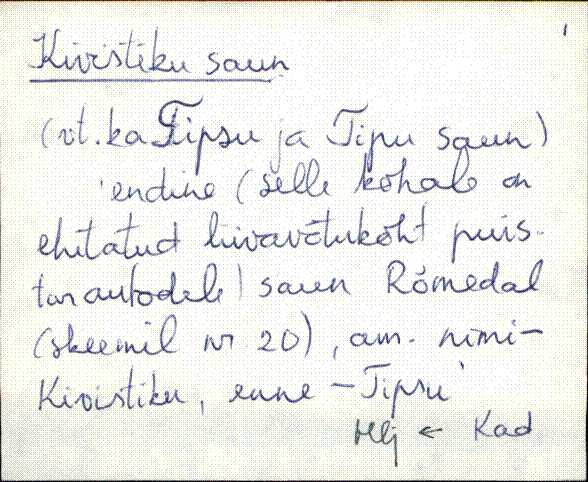 Kivistiku saun
(vt. ka Tipsu ja Tipu saun)
'endine (selle kohale on
ehitatud liivavõtukoht puis-
turautodele) saun Rõmedal
(skeemil nr 20), am. nimi-
Kivistiku, enne - Tipsu'
Hlj ← Kad